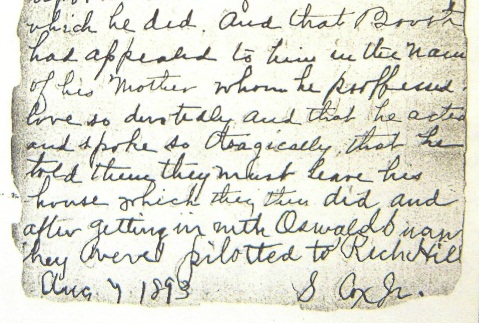 which he did. And that Booth
had appealed to him in the name
of his Mother whom he proffessed
love so devotedly and that he acted
and spoke so tragically that he
told them they must leave his
house which they then did, and
after getting in with Oswald
they were pilotted to Rich Hill
Aug 7 1893 S Cox Jr.